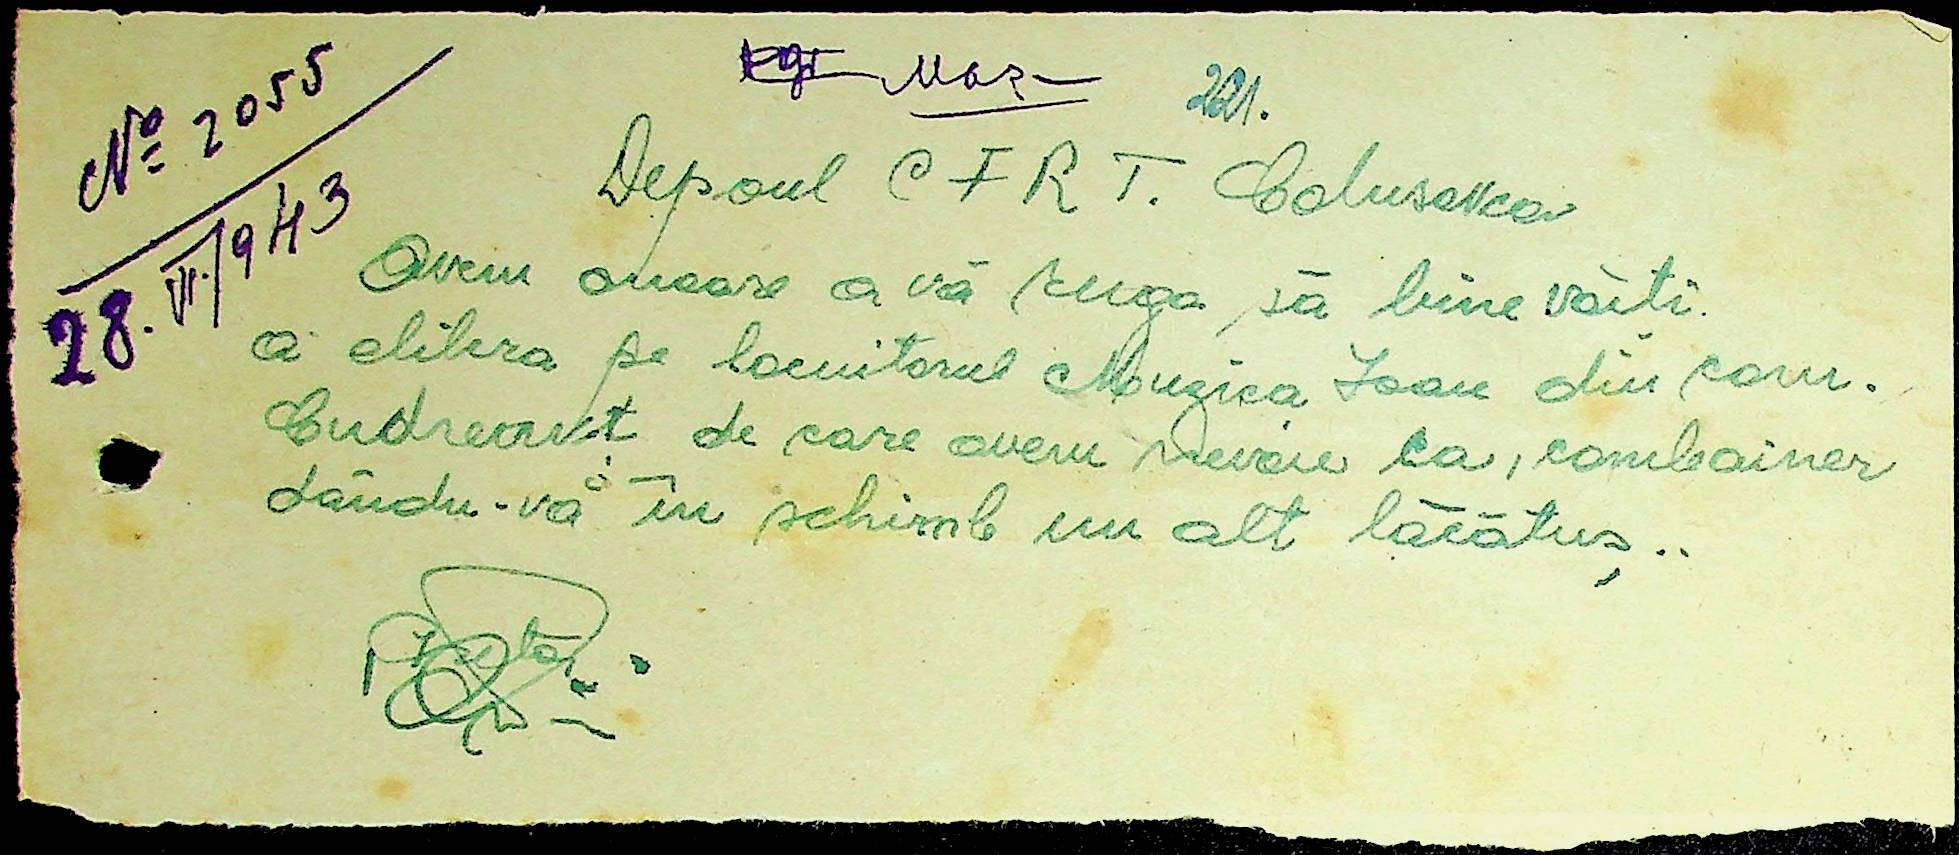 № 2055
28.VI.1943
221.
Depoul C F R T. Codusovca
Avem onoare a vă ruga să bine voiti.
a elibera pe locuitorul Mouzica Ioan din com.
Cudreavt de care avem nevoie ca, combainer
dându-vă în schimb un alt lăcătuș..